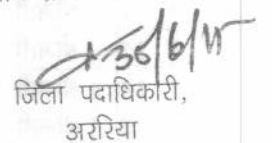 30/6/11
जिला पदाधिकारी,
अररिया